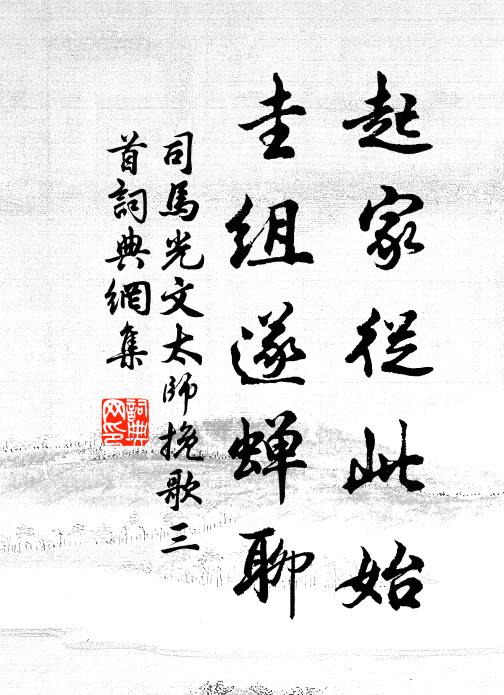 起家從此始
圭組遂蟬聊
司馬光文太師挽歌三
首詞典網集
詞典
网印